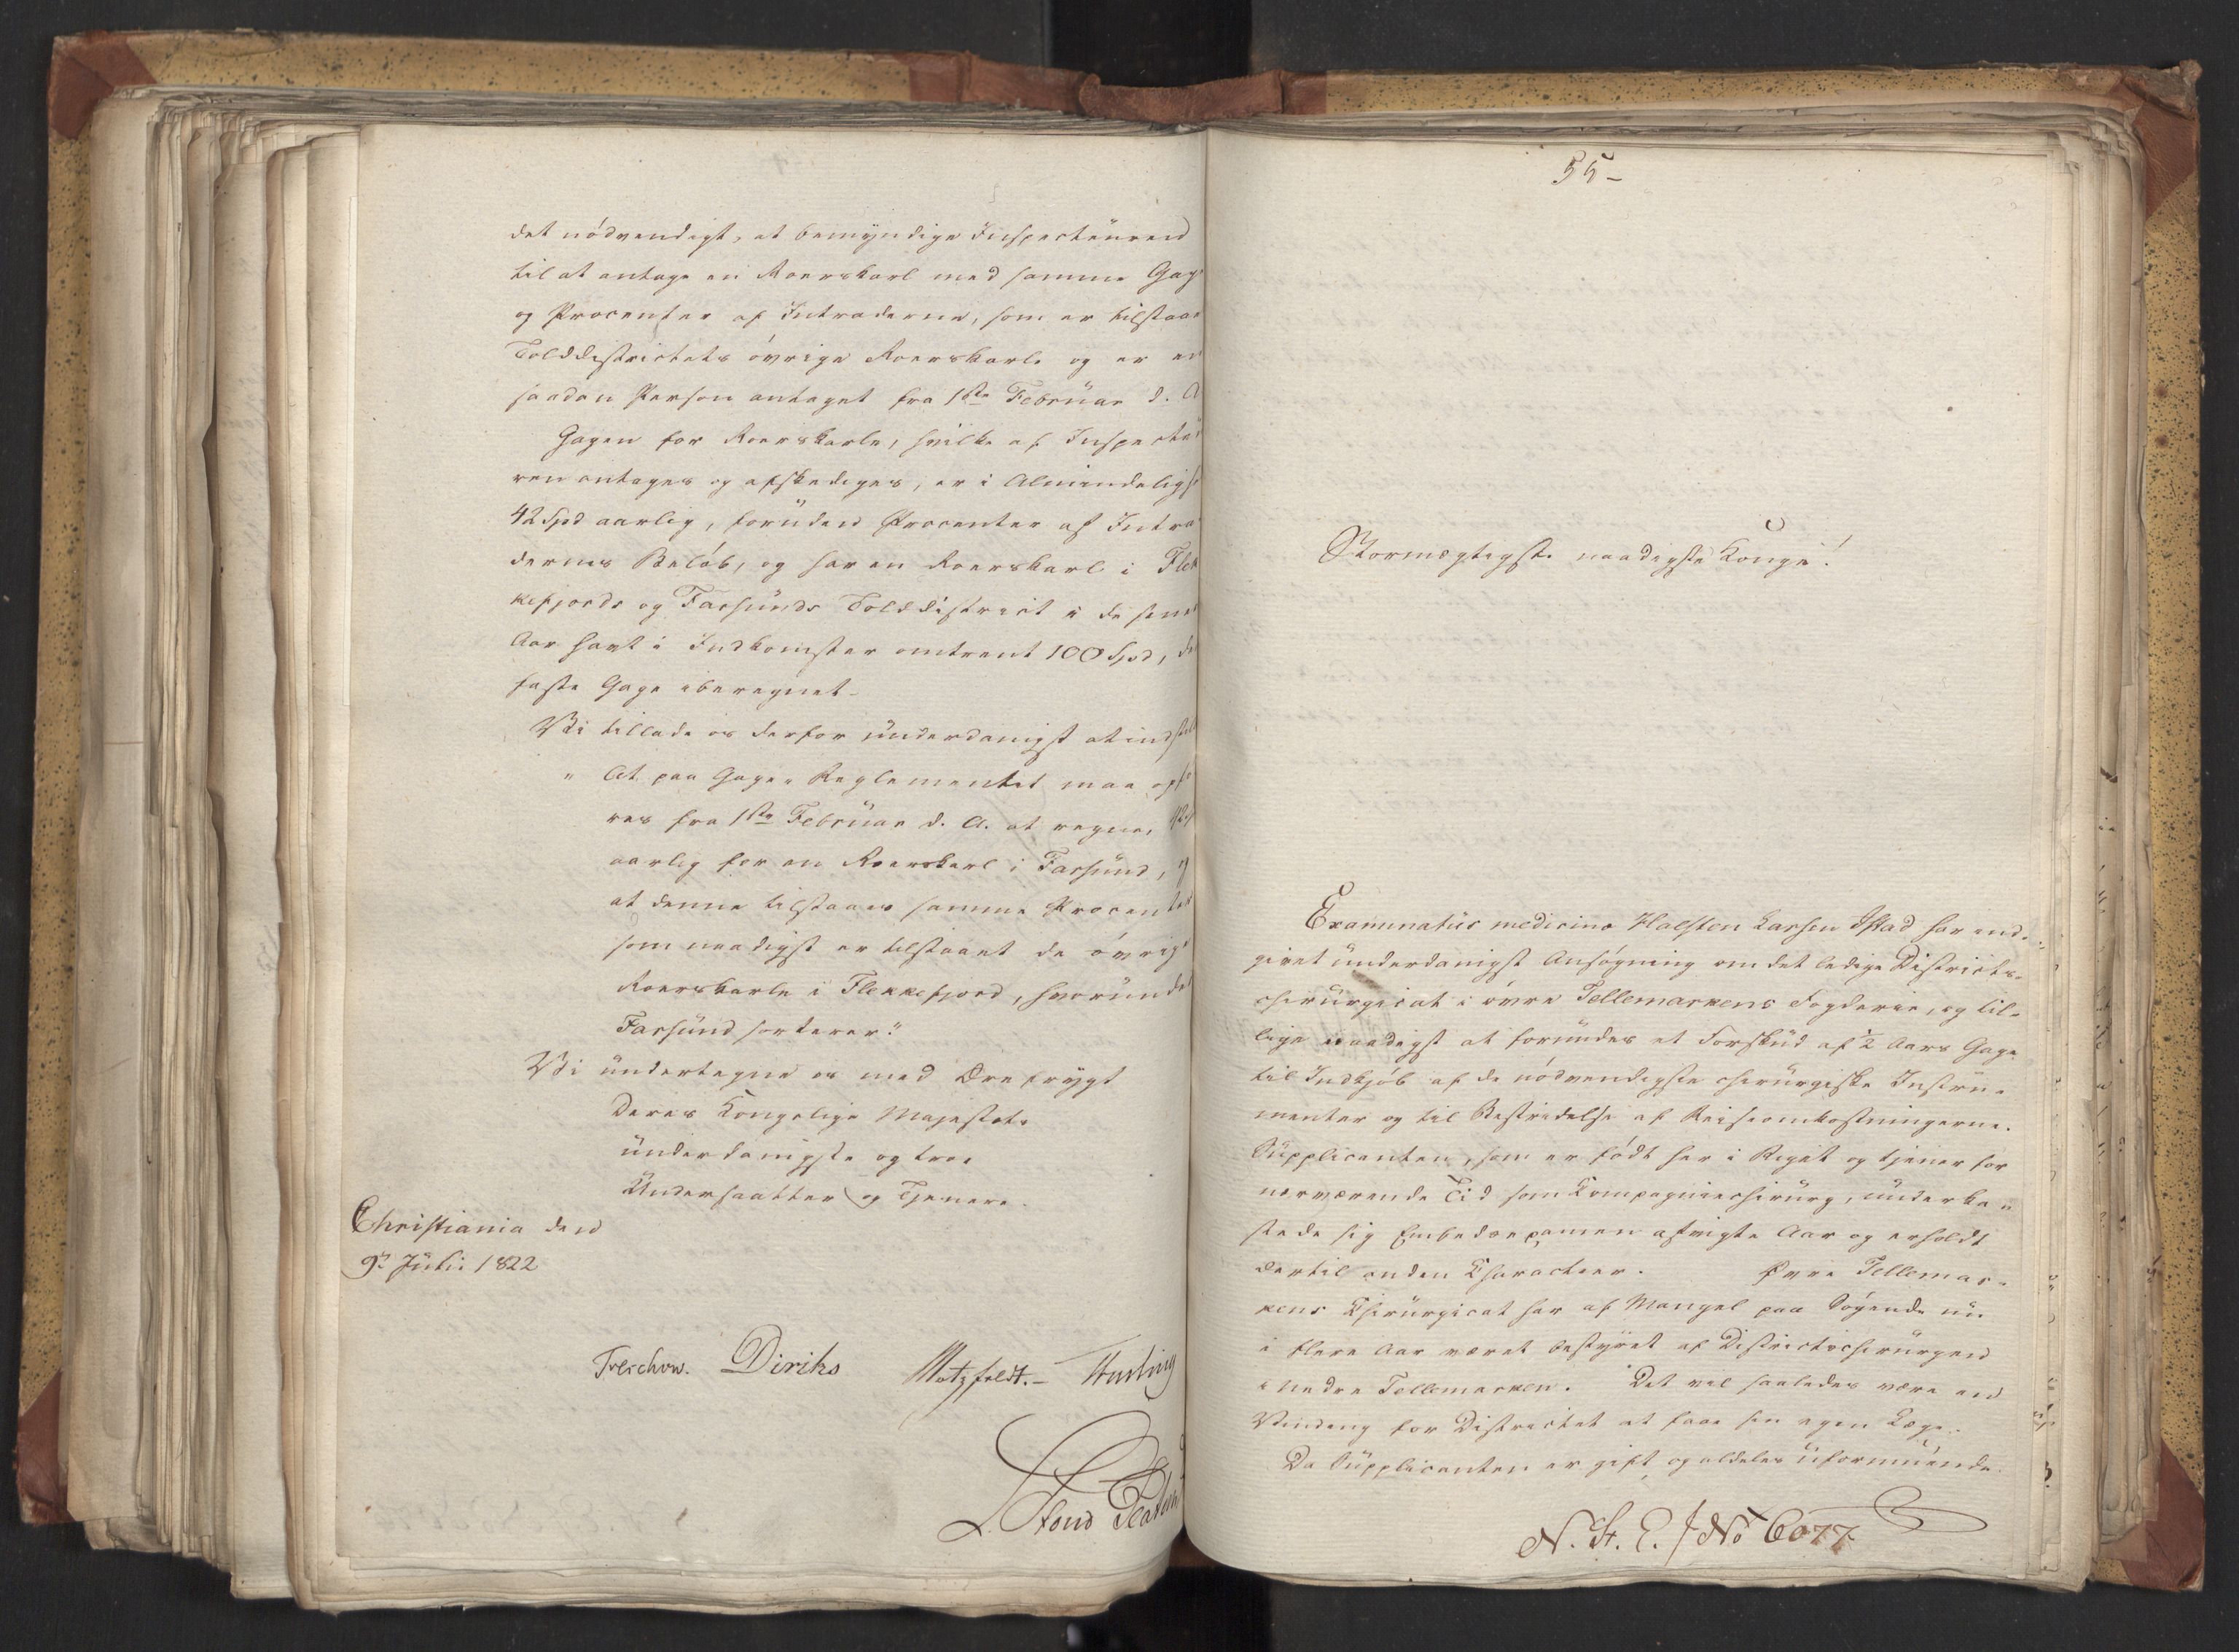 det nödvendigt, at bemyndige Inspecteuren
til at antage en Roerskarl med samme Gage
og Procenter af Intraderne, som er tilstaaet
Tolddistrictets övrige Roerskarle og er en
saadan Person antaget fra 1ste Februar d. A
Gagen for Roerskarle, hvilke af Inspecteu
ren antages og afskediges, er i Almindelighed
42 Spd aarlig, foruden Procenter af Intra
dernes Belöb, og har en Roerskarl i Flek
kefjords og Farsunds Tolddistrict i de senere
Aar havt i Indkomster omtrent 100 Spd, den
faste Gage iberegnet.
Vi tillade os derfor underdanigst at indstille
" At paa Gage-Reglementet maa opfö
res fra 1ste Februar d. A. at regne, 42
aarlig for en Roerskarl i Farsund, og
at denne tilstaaes samme Procenter
som naadigst er tilstaaet de övrige
Roerskarle i Flekkefjord, hvorunder
Farsund sorterer."
Vi undertegne os med Ærefrygt
Deres Kongelige Majestæts
underdanigste og troe
Undersaatter og Tjenere.
Christiania den
9de Julii 1822
Treschow. Diriks Motzfeldt.- Hurling
L. Stoud Platou
55-
Stormægtigste naadigste Konge!
Examinatus medicinæ Halsten Larsen Istad har ind-
givet underdanigst Ansögning om det ledige Districts-
chirurgicat i övre Tellemarkens Fogderie, og til-
lige naadigst at forundes et Forskud af 1/2 Aars Gage
til Indkjöb af de nödvendigste chirurgiske Instru-
menter og til Bestridelse af Reiseomkostningerne.
Supplicanten, som er födt her i Riget og tjener for
nærværende Tid som Compagniechirurg, underka-
stede sig Embedsexamen afvigte Aar og erholdt
dertil anden Characteer. Övre Tellemar-
kens Chirurgicat har af Mangel paa Sögende nu
i flere Aar været bestyret af Districtschirurgen
i nedre Tellemarken. Det vil saaledes være en
Vinding for Districtet at faae sin egen Læge.
Da Supplicanten er gift og aldeles uformuende
N. St. E. / No 6077